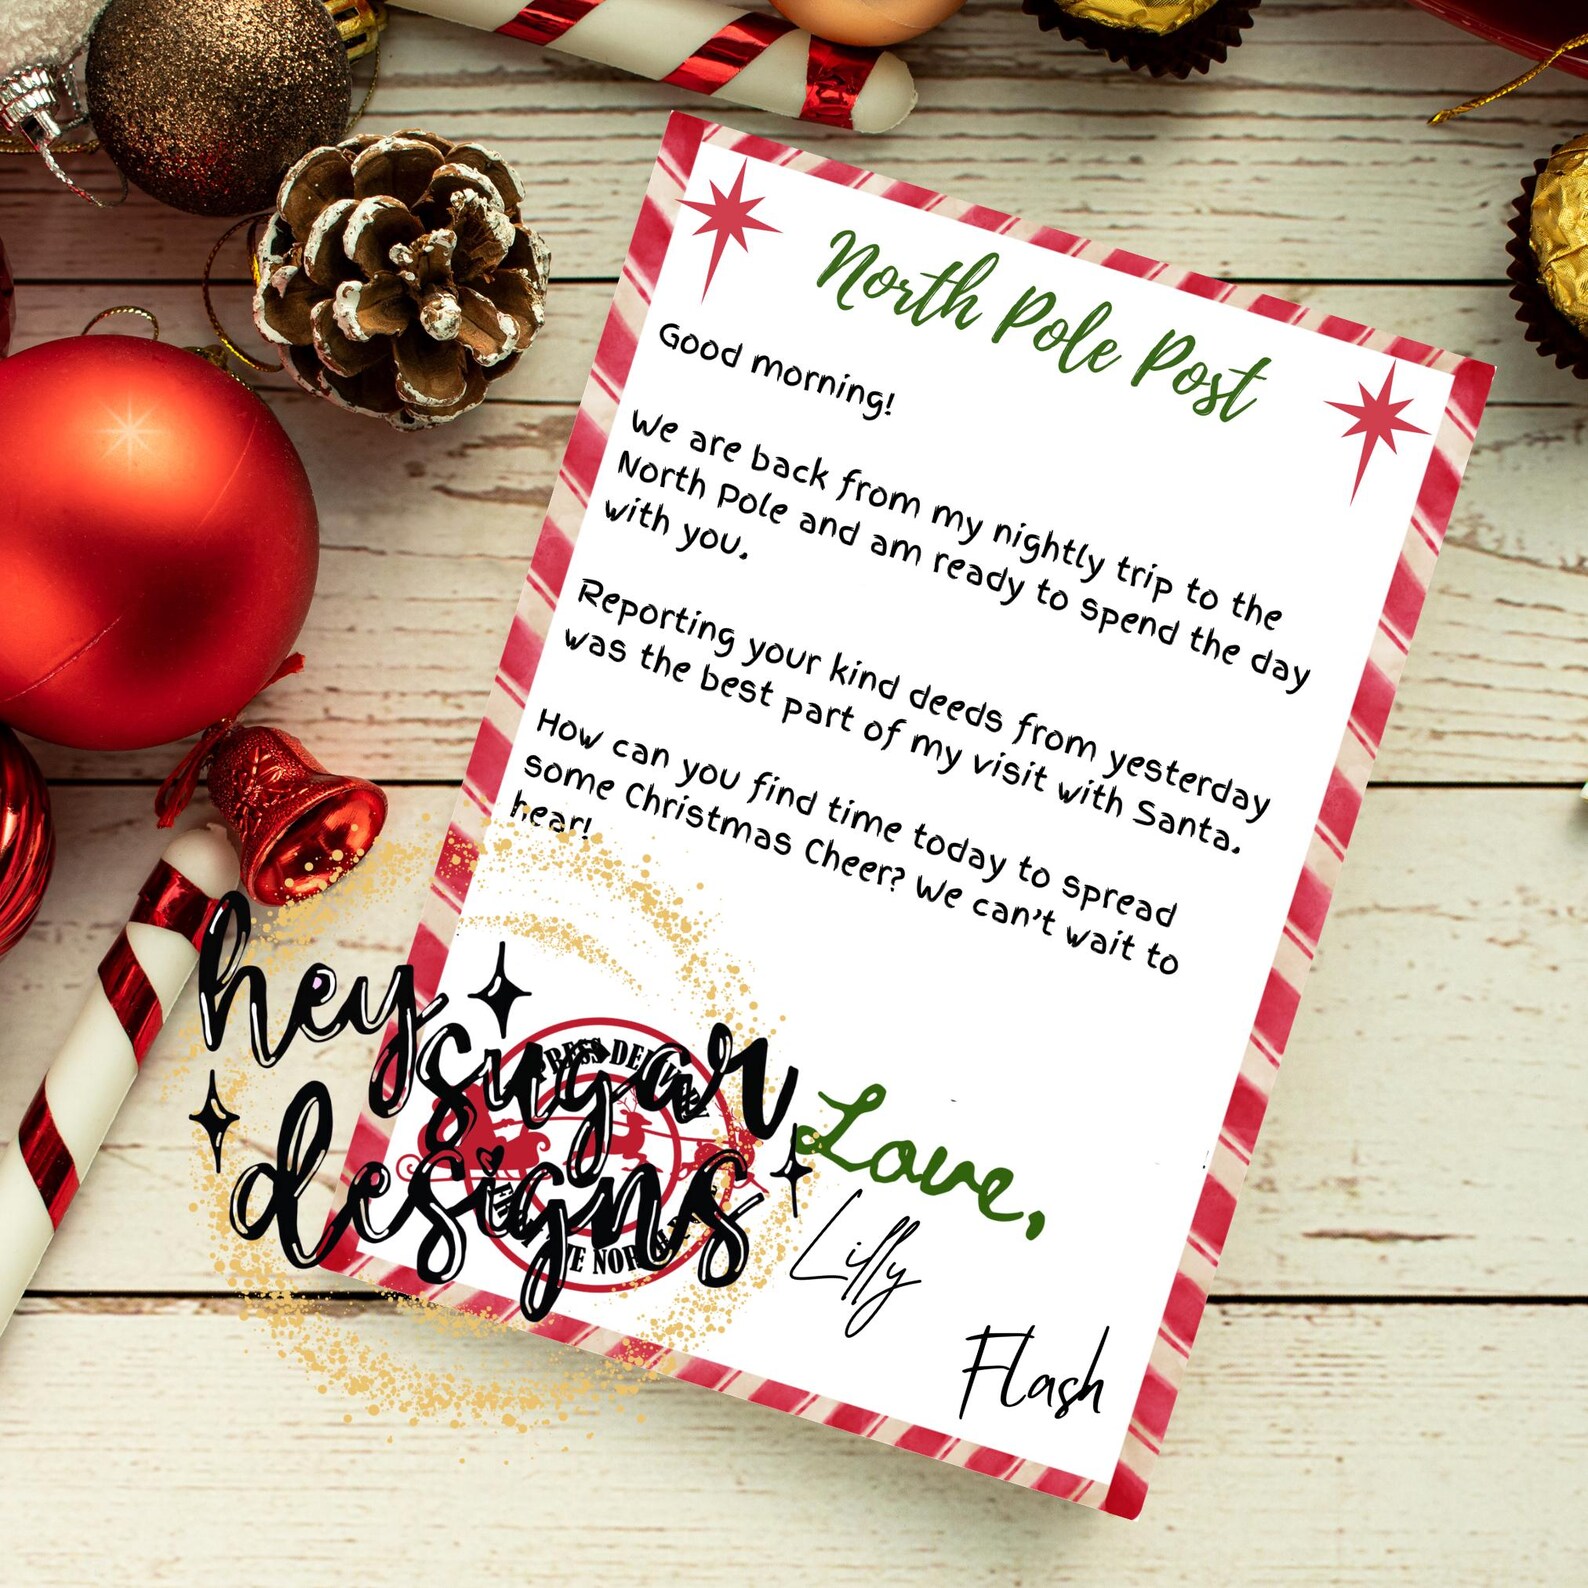 North Pole Post
Good morning!
We are back from my nightly trip to the
North Pole and am ready to spend the day
with you.
Reporting your kind deeds from yesterday
was the best part of my visit with Santa.
How can you find time today to spread
some Christmas Cheer? We can't wait to
hear!
Love,
Lilly
Flash
hey
sugar
designs